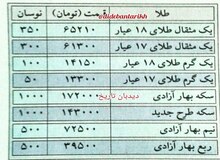 aidebantarikh
طلا قیمت (تومان) نوسان
یک مثقال طلای ۱۸ عیار ۶۵۲۱۰ ۳۵۰
یک مثقال طلای ۱۷ عیار ۶۱۳۰۰ ۳۰۰
یک گرم طلای ۱۸ عیار ۱۴۱۵۰ ۱۰۰
یک گرم طلای ۱۷ عیار ۱۳۳۰۰ ۵۰
سکه بهار آزادی ۱۷۲۰۰۰ ۱۰۰۰
دیدبان تاریخ
سکه طرح جدید ۱۴۳۰۰۰ ۱۰۰۰
نیم بهار آزادی ۷۲۵۰۰ ۵۰۰
ربع بهار آزادی ۳۹۵۰۰ ۵۰۰